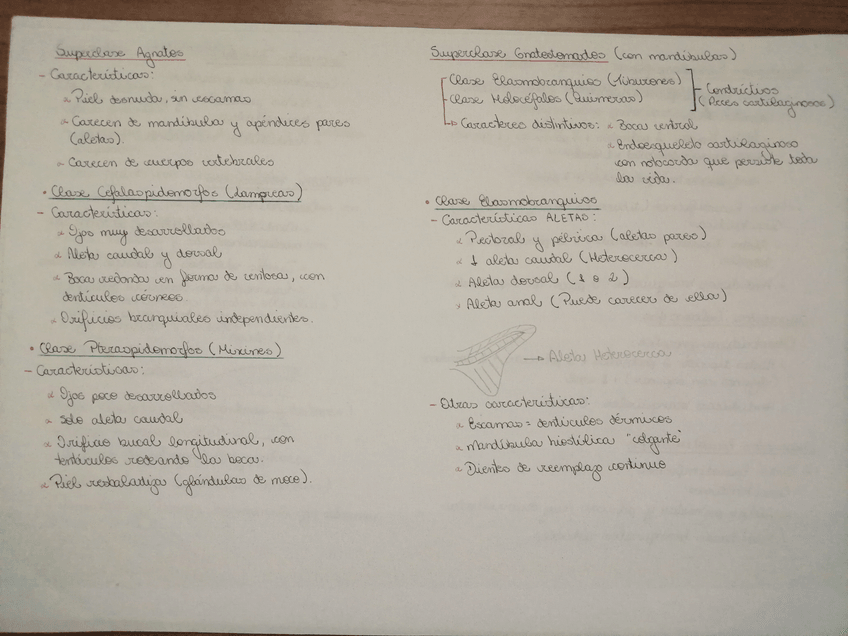 Superclase Agnatos
- Características:
Piel desnuda, sin escamas
Carecen de mandíbula y apéndices pares
(aletas).
Carecen de cuerpos vertebrales
• Clase Cefalaspidomorfos (Lampreas)
- Características:
Ojos muy desarrollados
Aleta caudal y dorsal
Boca redonda en forma de ventosa, con
dentículos córneos.
Orificios branquiales independientes.
• Clase Pteraspidomorfos (Mixines)
- Características:
Ojos poco desarrollados
Solo aleta caudal
Orificio bucal longitudinal, con
tentáculos rodeando la boca.
Piel resbaladiza (glándulas de moco).
Superclase Gnatostomados (con mandíbulas)
Clase Elasmobranquios (Tiburones)
Clase Holocéfalos (Quimeras)
Condrictios
(Peces cartilaginosos)
Caracteres distintivos: Boca ventral
Endoesqueleto cartilaginoso
con notocorda que persiste toda
la vida.
• Clase Elasmobranquios
- Características ALETAS:
Pectoral y pélvica (aletas pares)
1 aleta caudal (Heterocerca)
Aleta dorsal (1 o 2)
Aleta anal (Puede carecer de ella)
→ Aleta Heterocerca
- Otras características:
Escamas = dentículos dérmicos
Mandíbula hiostílica "colgante"
Dientes de reemplazo continuo